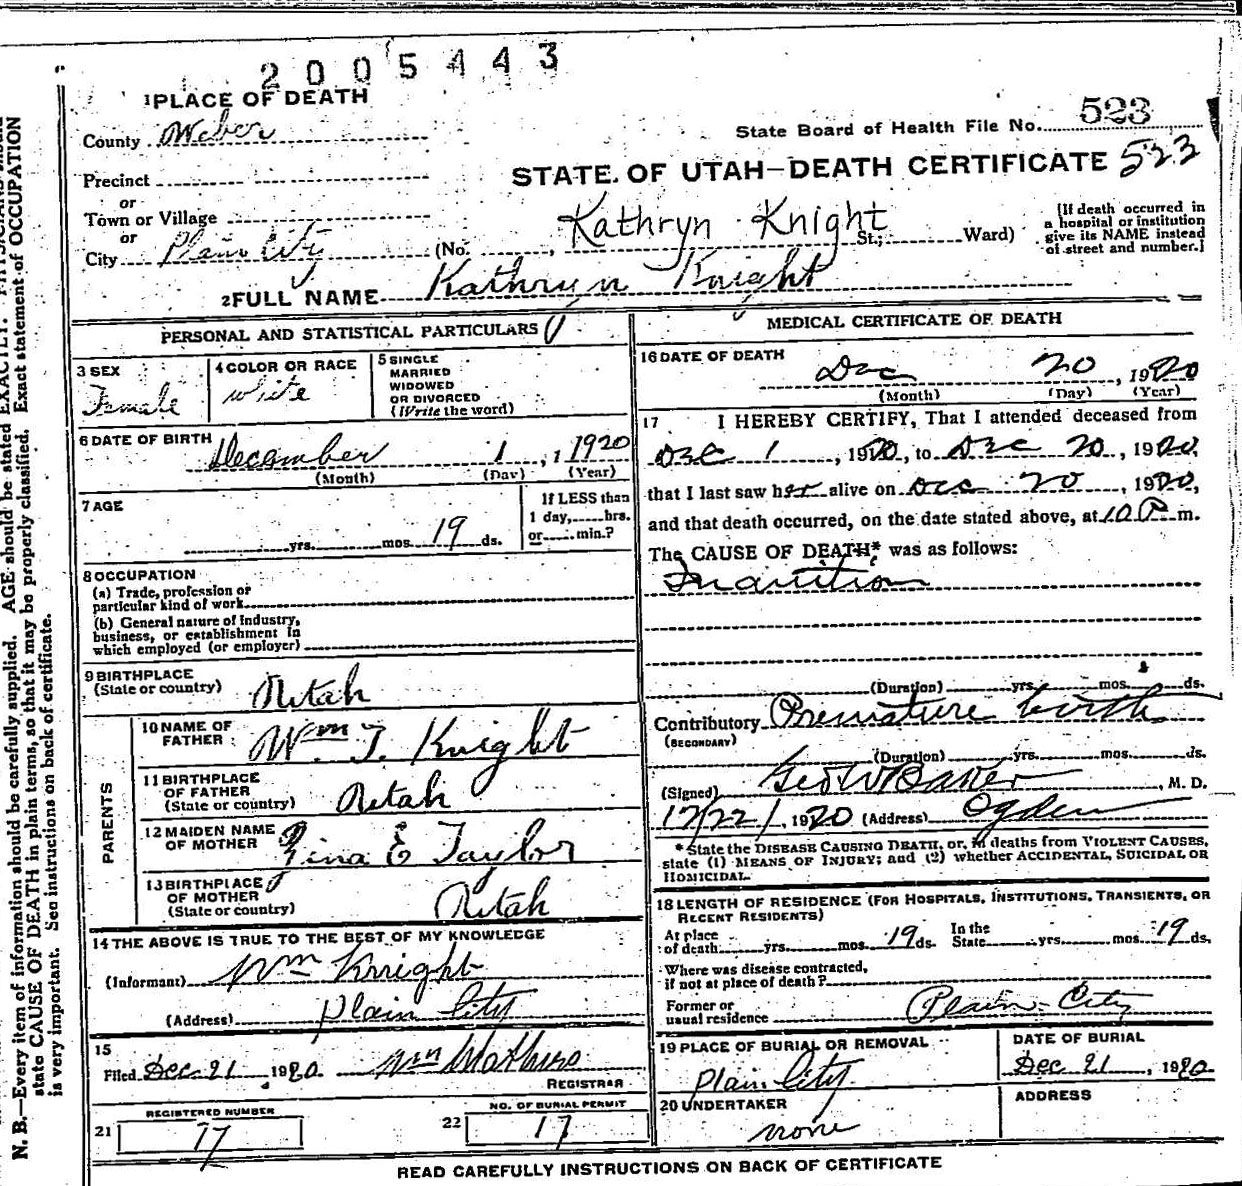 2005443
1 PLACE OF DEATH
County Weber
State Board of Health File No. 523
STATE OF UTAH—DEATH CERTIFICATE 523
Precinct
or
Town or Village
or
City Plain City (No. , Kathryn Knight St.; Ward)
[If death occurred in
a hospital or institution
give its NAME instead
of street and number.]
2 FULL NAME Kathryn Knight
PERSONAL AND STATISTICAL PARTICULARS
3 SEX
Female
4 COLOR OR RACE
White
5 SINGLE
MARRIED
WIDOWED
OR DIVORCED
(Write the word)
6 DATE OF BIRTH
December 1, 1 1920
(Month) (Day) (Year)
7 AGE
yrs. mos. 19 ds.
If LESS than
1 day, hrs.
or min.?
8 OCCUPATION
(a) Trade, profession or
particular kind of work
(b) General nature of Industry,
business, or establishment in
which employed (or employer)
9 BIRTHPLACE
(State or country) Utah
PARENTS
10 NAME OF
FATHER Wm J. Knight
11 BIRTHPLACE
OF FATHER
(State or country) Utah
12 MAIDEN NAME
OF MOTHER E Taylor
13 BIRTHPLACE
OF MOTHER
(State or country) Utah
14 THE ABOVE IS TRUE TO THE BEST OF MY KNOWLEDGE
(Informant) Wm Knight
(Address) Plain City
15
Filed Dec 21, 1920 Wm
REGISTRAR
REGISTERED NUMBER
21 17
NO. OF BURIAL PERMIT
22 17
MEDICAL CERTIFICATE OF DEATH
16 DATE OF DEATH
Dec 20, 1920
(Month) (Day) (Year)
17 I HEREBY CERTIFY, That I attended deceased from
Dec 1, 1920, to Dec 20, 1920,
that I last saw her alive on Dec 20, 1920,
and that death occurred, on the date stated above, at 10 P m.
The CAUSE OF DEATH* was as follows:
Inanition
(Duration) yrs. mos. ds.
Contributory Premature birth
(SECONDARY)
(Duration) yrs. mos. ds.
(Signed) Geo W Baker, M. D.
12/22/, 1920 (Address) Ogden
* State the DISEASE CAUSING DEATH, or, in deaths from VIOLENT CAUSES,
state (1) MEANS OF INJURY; and (2) whether ACCIDENTAL, SUICIDAL OR
HOMICIDAL.
18 LENGTH OF RESIDENCE (FOR HOSPITALS, INSTITUTIONS, TRANSIENTS, OR
RECENT RESIDENTS)
At place
of death yrs. mos. 19 ds.
In the
State yrs. mos. 19 ds.
Where was disease contracted,
if not at place of death?
Former or
usual residence Plain City
19 PLACE OF BURIAL OR REMOVAL
Plain City
DATE OF BURIAL
Dec 21, 1920
20 UNDERTAKER
none
ADDRESS
READ CAREFULLY INSTRUCTIONS ON BACK OF CERTIFICATE
N. B.—Every item of information should be carefully supplied. AGE should be stated EXACTLY.
state CAUSE OF DEATH in plain terms, so that it may be properly classified. Exact statement of OCCUPATION
is very important. See instructions on back of certificate.